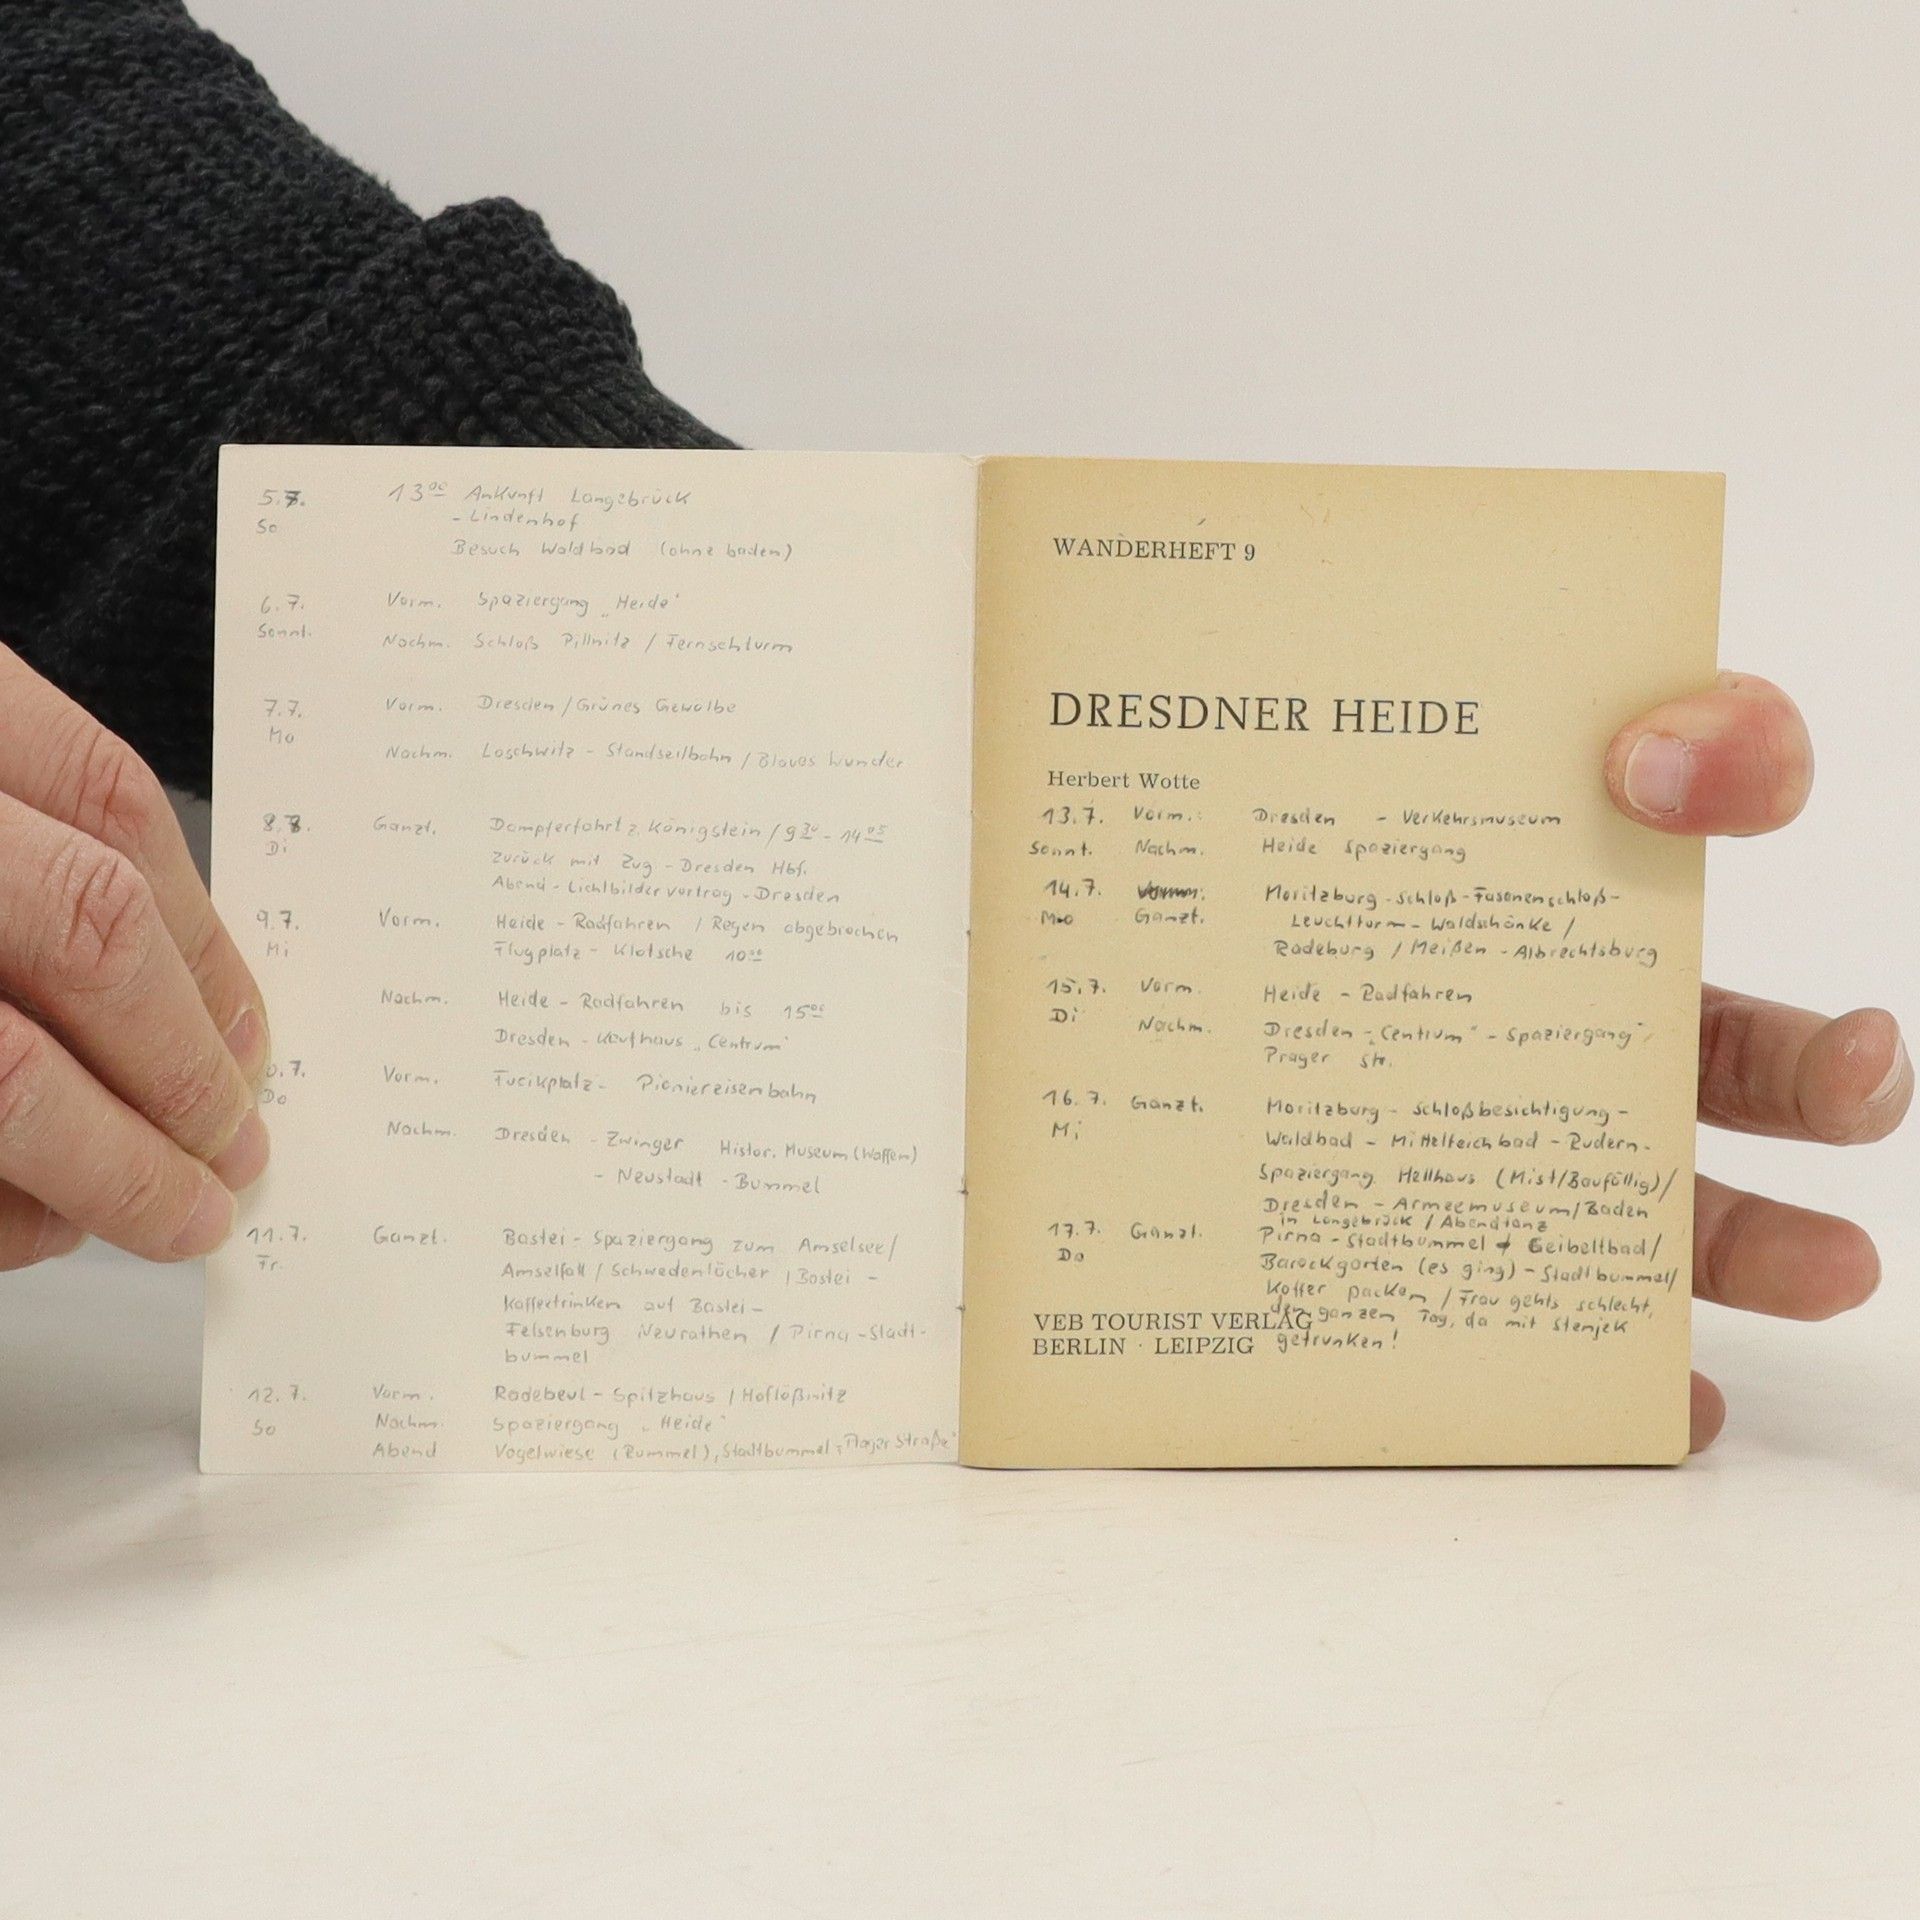 5.7. 13⁰⁰ Ankunft Langebrück
So - Lindenhof
Besuch Waldbad (ohne baden)
6.7. Vorm. Spaziergang „Heide“
Sonnt. Nachm. Schloß Pillnitz / Fernsehturm
7.7. Vorm. Dresden / Grünes Gewölbe
Mo
Nachm. Loschwitz - Standseilbahn / Blaues Wunder
8.7. Ganzt. Dampferfahrt z. Königstein / 9³⁰ - 14⁰⁵
Di zurück mit Zug - Dresden Hbf.
Abend - Lichtbildervortrag - Dresden
9.7. Vorm. Heide - Radfahren / Regen abgebrochen
Mi Flugplatz - Klotsche 10⁰⁰
Nachm. Heide - Radfahren bis 15⁰⁰
Dresden - Kaufhaus „Centrum“
0.7. Vorm. Fucikplatz - Pioniereisenbahn
Do
Nachm. Dresden - Zwinger Histor. Museum (Waffen)
- Neustadt - Bummel
11.7. Ganzt. Bastei - Spaziergang zum Amselsee /
Fr. Amselfall / Schwedenlöcher / Bastei -
Kaffeetrinken auf Bastei -
Felsenburg Neurathen / Pirna - Stadt-
bummel
12.7. Vorm. Radebeul - Spitzhaus / Hoflößnitz
So Nachm. Spaziergang „Heide“
Abend Vogelwiese (Rummel), Stadtbummel „Prager Straße“
WANDERHEFT 9
DRESDNER HEIDE
Herbert Wotte
13.7. Vorm.: Dresden - Verkehrsmuseum
Sonnt. Nachm. Heide Spaziergang
14.7. Moritzburg - Schloß - Fasanenschloß -
Mo Ganzt. Leuchtturm - Waldschänke /
Radeburg / Meißen - Albrechtsburg
15.7. Vorm. Heide - Radfahren
Di Nachm. Dresden - „Centrum“ - Spaziergang
Prager Str.
16.7. Ganzt. Moritzburg - Schloßbesichtigung -
Mi Waldbad - Mittelteichbad - Rudern -
Spaziergang Hellhaus (Mist/Baufällig) /
Dresden - Armeemuseum / Baden
in Langebrück / Abendtanz
17.7. Ganzt. Pirna - Stadtbummel Geibeltbad /
Do Barockgarten (es ging) - Stadtbummel /
Koffer packen / Frau gehts schlecht,
den ganzen Tag, da mit Stenjek
getrunken!
VEB TOURIST VERLAG
BERLIN · LEIPZIG